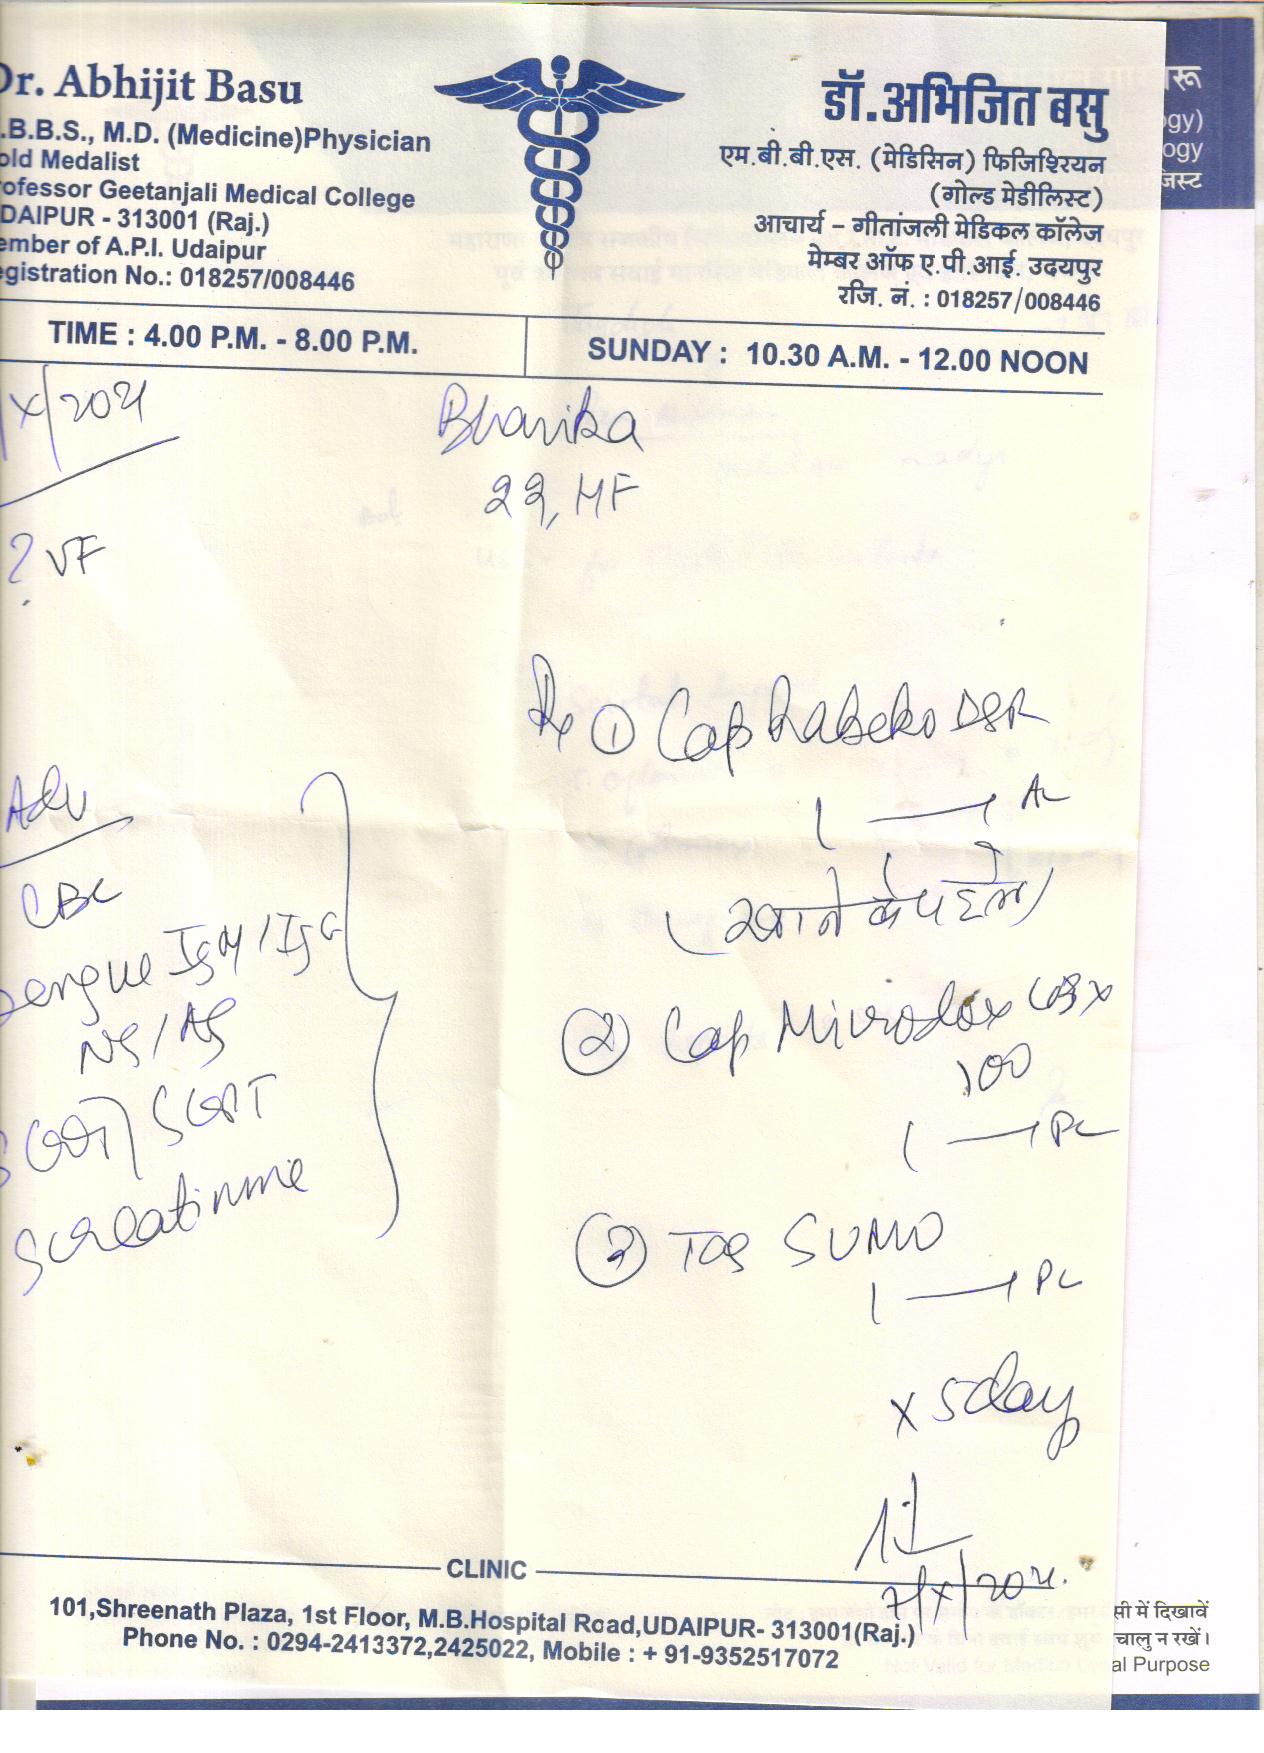 Dr. Abhijit Basu
.B.B.S., M.D. (Medicine)Physician
old Medalist
rofessor Geetanjali Medical College
DAIPUR - 313001 (Raj.)
ember of A.P.I. Udaipur
egistration No.: 018257/008446
डॉ.अभिजित बसु
एम.बी.बी.एस. (मेडिसिन) फिजिश्रियन
(गोल्ड मेडीलिस्ट)
आचार्य - गीतांजली मेडिकल कॉलेज
मेम्बर ऑफ ए.पी.आई. उदयपुर
रजि. नं. : 018257/008446
रू
gy)
ogy
जिस्ट
TIME : 4.00 P.M. - 8.00 P.M.
SUNDAY : 10.30 A.M. - 12.00 NOON
/X/2021
Bhavika
22, HF
? VF
Rx ① Cap Rabeko DSR
1 → AC
(खाने के पहले)
② Cap Microdox LBX
100
1 → PC
③ Tab SUMO
1 → PC
x 5day
Adv
CBC
Dengue IgM/IgG
NS/AG
SGOT/SGPT
S creatinine
7/X/2021.
CLINIC
101,Shreenath Plaza, 1st Floor, M.B.Hospital Road,UDAIPUR- 313001(Raj.)
Phone No. : 0294-2413372,2425022, Mobile : + 91-9352517072
सी में दिखावें
चालु न रखें।
Not Valid for Medico Legal Purpose